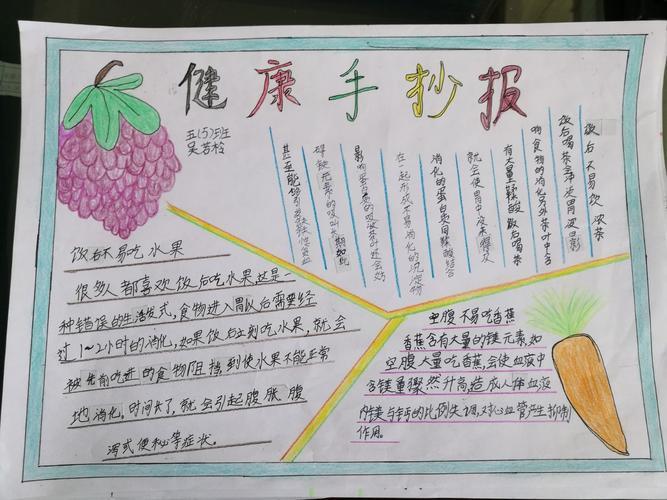 健康手抄报
五(5)班
吴若
饭后不易饮浓茶
饭后喝茶会冲淡胃液影
响食物的消化另外茶叶中含
有大量鞣酸饭后喝茶
就会使胃中没来
消化的蛋白质同鞣酸结合
在一起形成不易消化的沉淀物
影响蛋白质的吸收茶叶还会妨
碍铁元素的吸收长期如此
甚至能够引发缺铁性贫血
饭后不易吃水果
很多人都喜欢饭后吃水果这是一
种错误的生活方式,食物进入胃以后需要经
过1~2小时的消化,如果饭后立刻吃水果,就会
被先前吃进的食物阻挡到使水果不能正常
地消化。时间长了,就会引起腹胀腹
泻或便秘等症状。
空腹不易吃香蕉
香蕉含有大量的镁元素,如
空腹大量吃香蕉,会使血液中
含镁量骤然升高造成人体血液
内镁与钙的比例失调,对心血管产生抑制
作用。